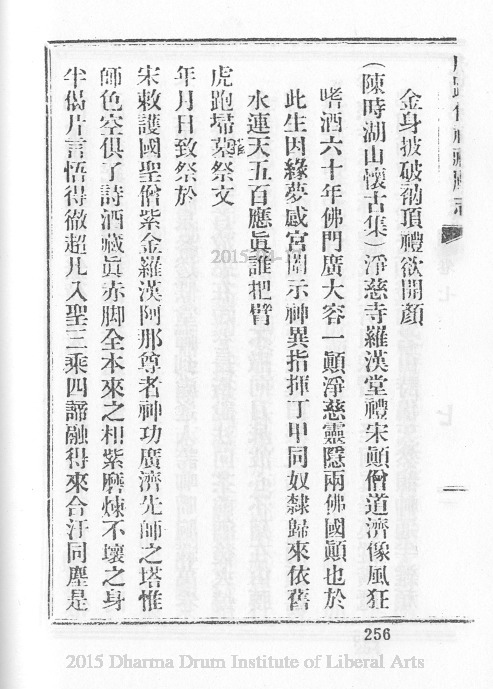 金身披破衲頂禮欲開顏
(陳時湖山懷古集)淨慈寺羅漢堂禮宋顚僧道濟像風狂
嗜酒六十年佛門廣大容一顚淨慈靈隱兩佛國顚也於
此生因緣夢感宮闈示神異指揮丁甲同奴隸歸來依舊
水連天五百應眞誰把臂
虎跑墖祭文
年月日致祭於
宋敕護國聖僧紫金羅漢阿那尊者神功廣濟先師之塔惟
師色空俱了詩酒藏眞赤脚全本來之相紫磨煉不壞之身
半偈片言悟得徹超凡入聖三乘四諦融得來合汙同塵是
256
2015 Dharma Drum Institute of Liberal Arts